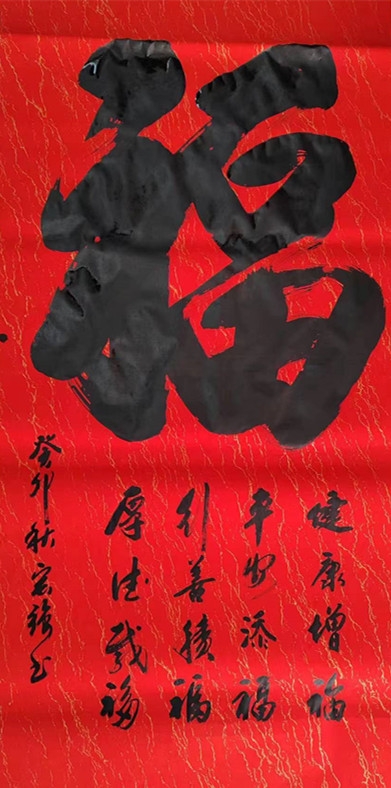 福
健康增福
平安添福
行善積福
厚德载福
癸卯秋宏强书